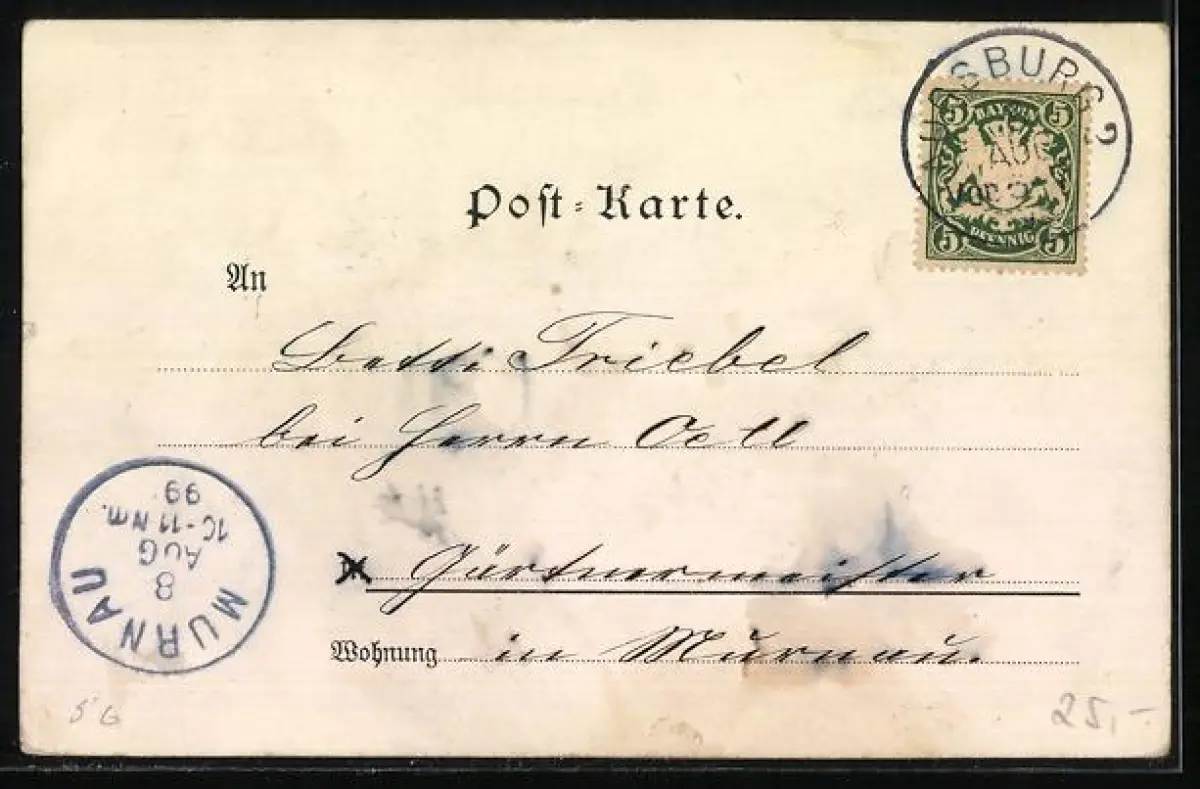 AUGSBURG 2
5 BAYERN 5
AUG
VOR.
5 PFENNIG 5
Post-Karte.
An
Betti Triebel
bei Herrn Oell
Gärtnermeister
Wohnung in Murnau.
MURNAU
8
AUG
10-11 Nm.
99
25,-